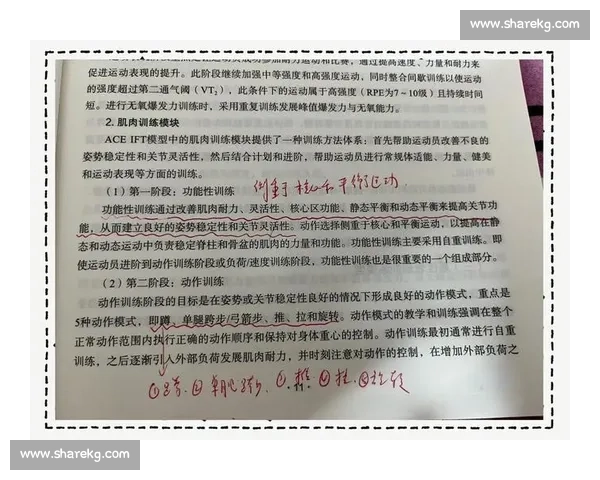 www.sharekg.com
促进运动表现的提升。此阶段继续加强中等强度和高强度运动，同时整合间歇训练以使运动
的强度超过第二通气阈（VT₂），此条件下的运动属于高强度（RPE为7～10级）且持续时间
短。进行无氧爆发力训练时，采用重复训练发展峰值爆发力与无氧能力。
2. 肌肉训练模块
ACE IFT模型中的肌肉训练模块提供了一种训练方法体系：首先帮助运动员改善不良的
姿势稳定性和关节灵活性，然后结合计划和进阶，帮助运动员进行常规体适能、力量、健美
和运动表现等方面的训练。
（1）第一阶段：功能性训练 侧重于核心和平衡运动
功能性训练通过改善肌肉耐力、灵活性、核心区功能、静态平衡和动态平衡来提高关节功
能，从而建立良好的姿势稳定性和关节灵活性。动作选择侧重于核心和平衡运动，以提高在静
态和动态运动中负责稳定脊柱和骨盆的肌肉的力量和功能。功能性训练主要采用自重训练。即
使运动员进阶到动作训练阶段或负荷/速度训练阶段，功能性训练也是很重要的一个组成部分。
（2）第二阶段：动作训练
动作训练阶段的目标是在姿势或关节稳定性良好的情况下形成良好的动作模式，重点是
5种动作模式，即蹲、单腿跨步/弓箭步、推、拉和旋转。动作模式的教学和训练强调在整个
正常动作范围内执行正确的动作顺序和保持对身体重心的控制。动作训练最初通常进行自重
训练，之后逐渐引入外部负荷发展肌肉耐力，并时刻注意对动作的控制，在增加外部负荷之
①蹲 ②单腿跨步
www.sharekg.com
www.sharekg.com